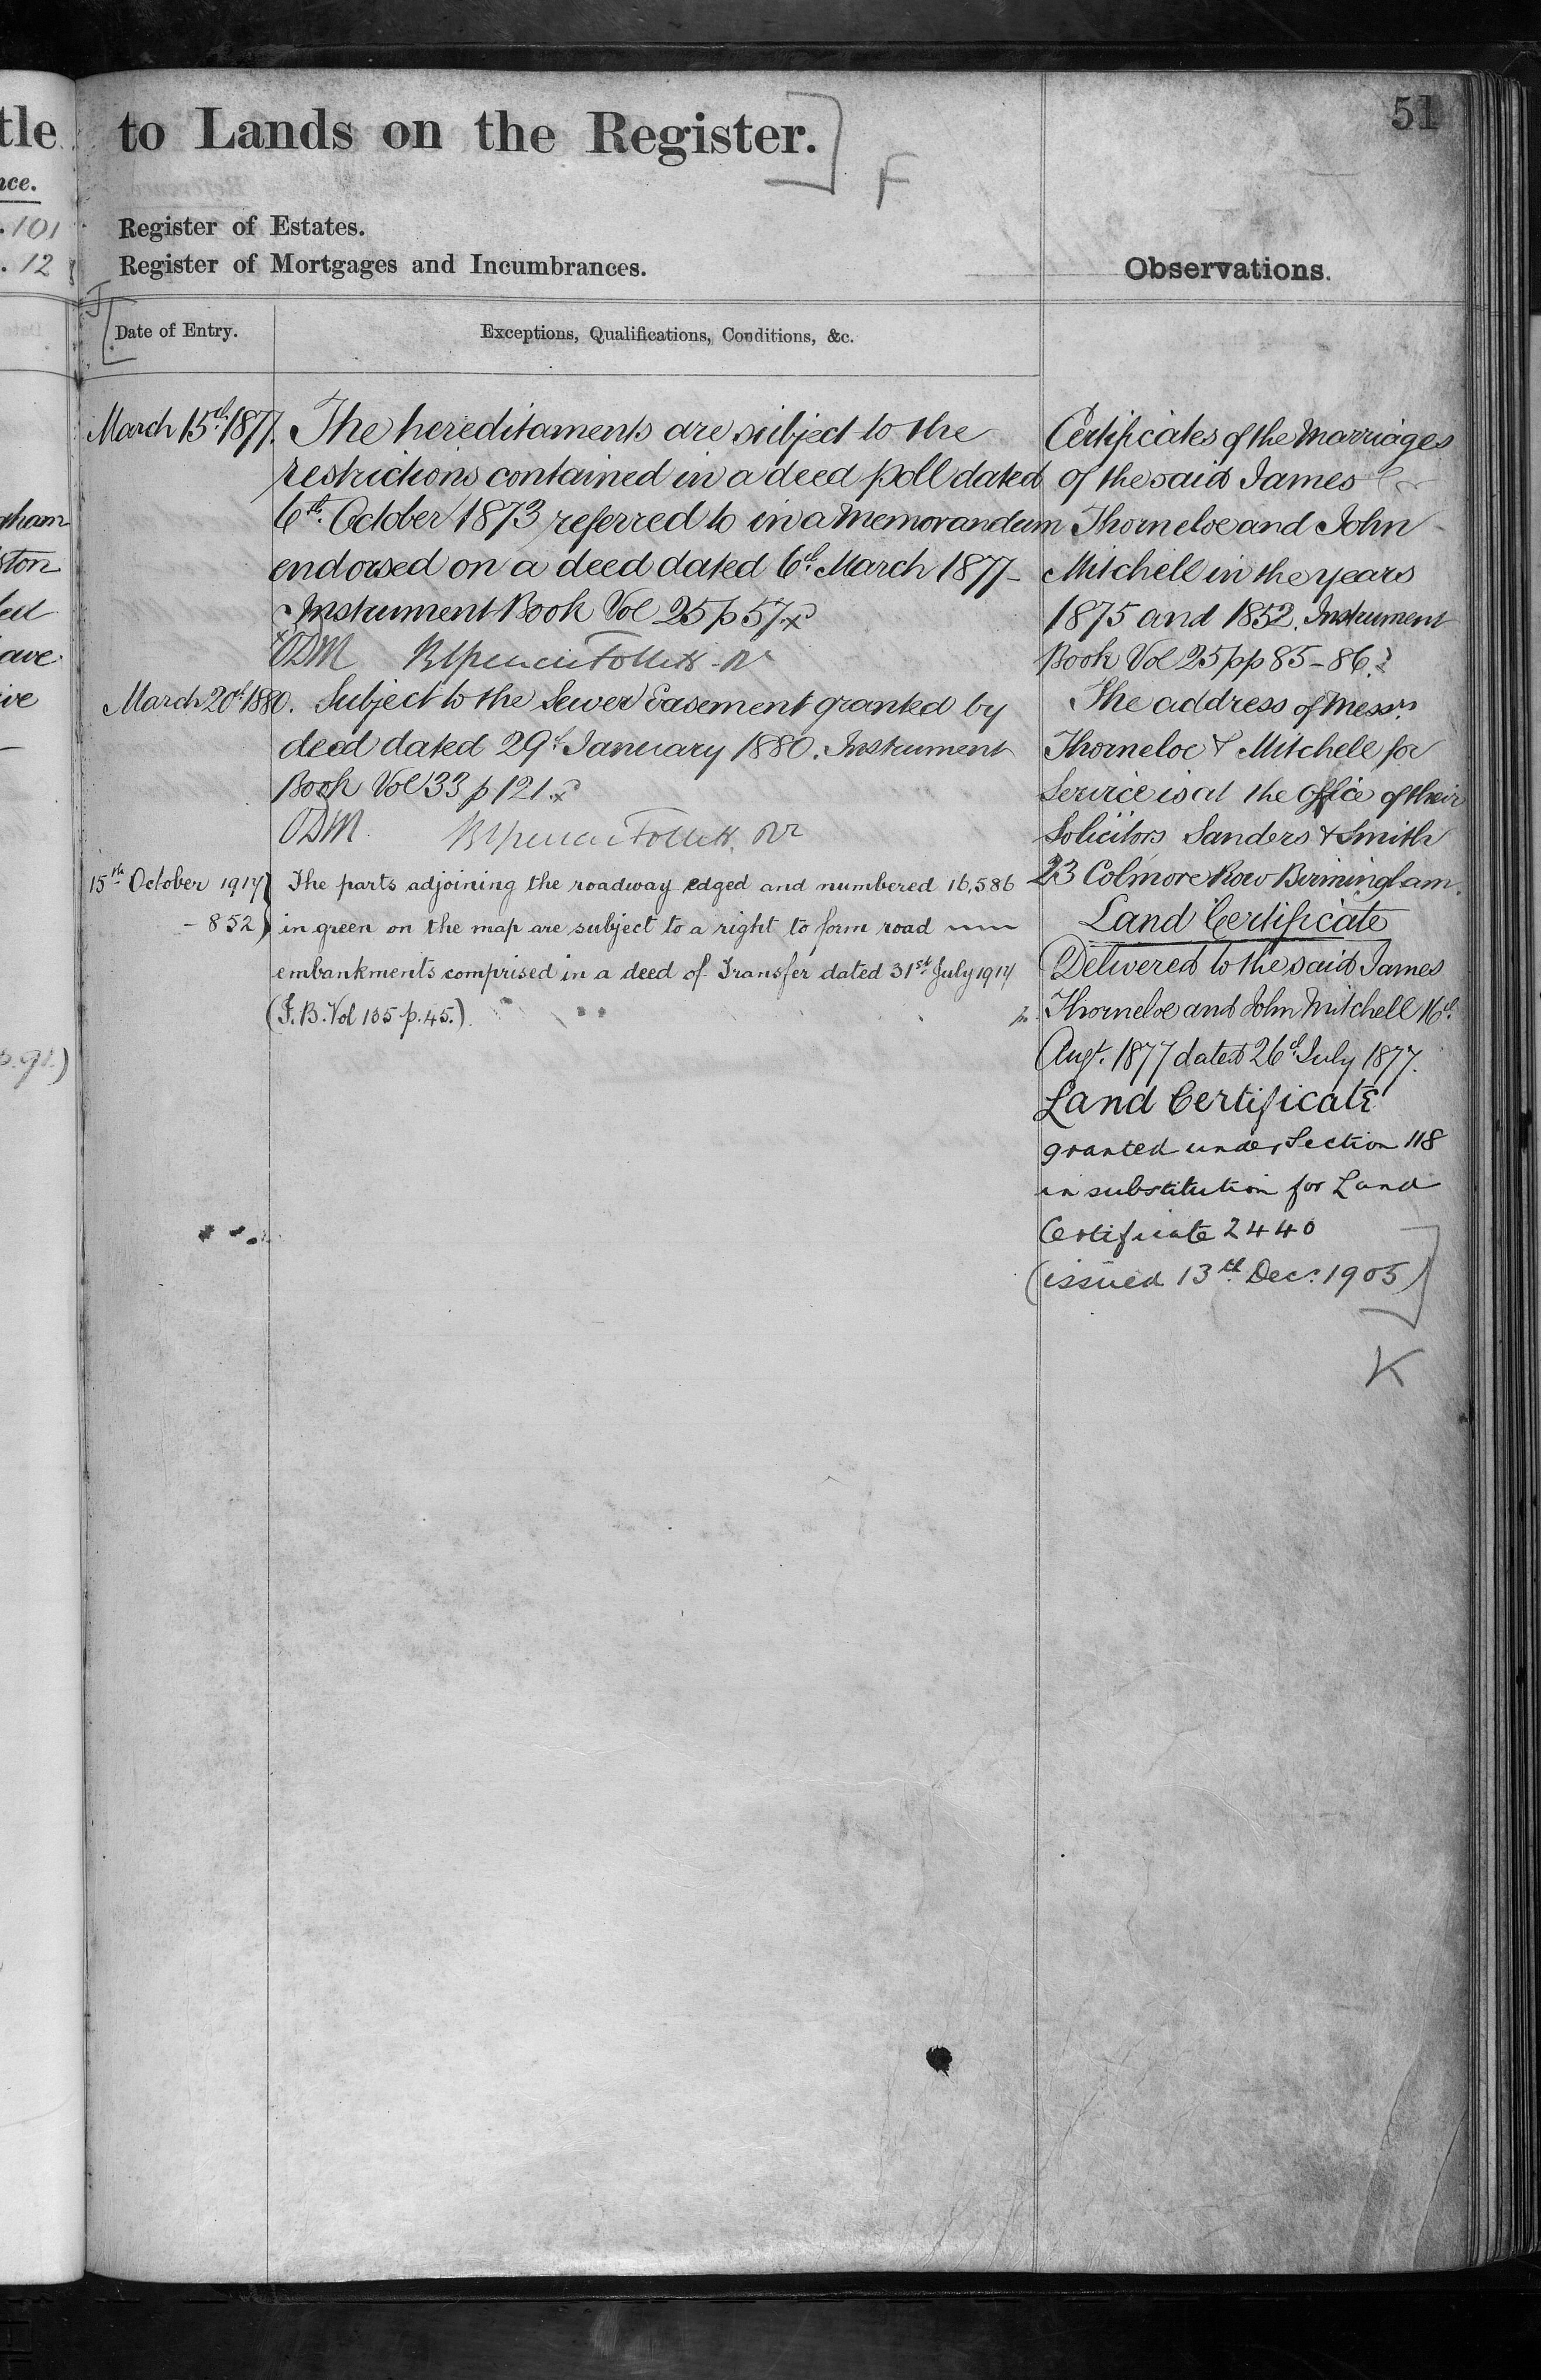 tle
nce.
.101
.12
gham
ston
ed
ave
ive
p.91.)
to Lands on the Register.
F
51
Register of Estates.
Register of Mortgages and Incumbrances.
Observations.
J
Date of Entry.
Exceptions, Qualifications, Conditions, &c.
March 15th 1877.
The hereditaments are subject to the
restrictions contained in a deed poll dated
6th October 1873 referred to in a Memorandum
endorsed on a deed dated 6th March 1877-
Instrument Book Vol 25 p 57 x
x ODM
March 20th 1880.
Subject to the Sewer Easement granted by
deed dated 29th January 1880. Instrument
Book Vol 33 p 121. x
ODM.
15th October 1914
- 852
The parts adjoining the roadway edged and numbered 16,586
in green on the map are subject to a right to form road
embankments comprised in a deed of Transfer dated 31st July 1914
(F.B. Vol 135 p. 45.)
Certificates of the Marriages
of the said James
Thorneloe and John
Mitchell in the years
1875 and 1852. Instrument
Book Vol 25 pp 85-86.
The address of Messrs
Thorneloe & Mitchell for
Service is at the Office of their
Solicitors Sanders & Smith
23 Colmore Row Birmingham.
Land Certificate
Delivered to the said James
Thorneloe and John Mitchell 16th
Augt. 1877 dated 26th July 1877.
Land Certificate
granted under Section 118
in substitution for Land
Certificate 2440
(issued 13th Decr. 1905)
K